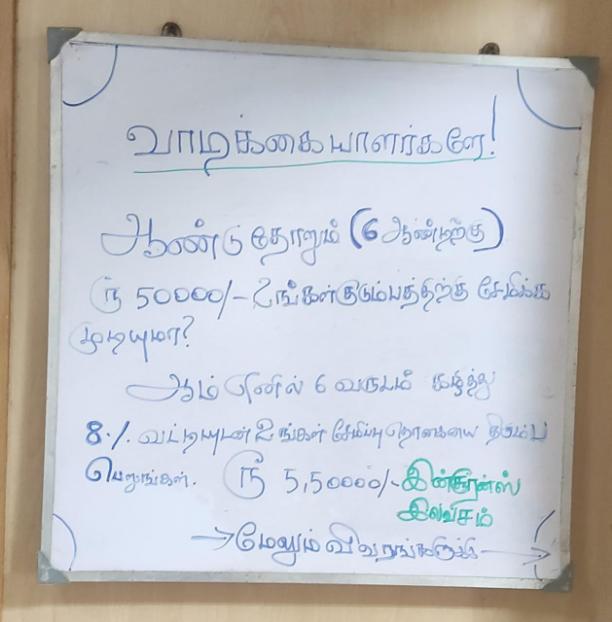 வாடிக்கையாளர்களே!
ஆண்டு தோறும் (6 ஆண்டிற்கு)
ரூ 50000/- உங்கள் குடும்பத்திற்கு சேமிக்க
முடியுமா?
ஆம் எனில் 6 வருடம் கழித்து
8% வட்டியுடன் உங்கள் சேமிப்பு தொகையை திரும்ப
பெறுங்கள். ரூ 5,50000/- இன்சூரன்ஸ்
இலவசம்
→ மேலும் விவரங்களுக்கு →